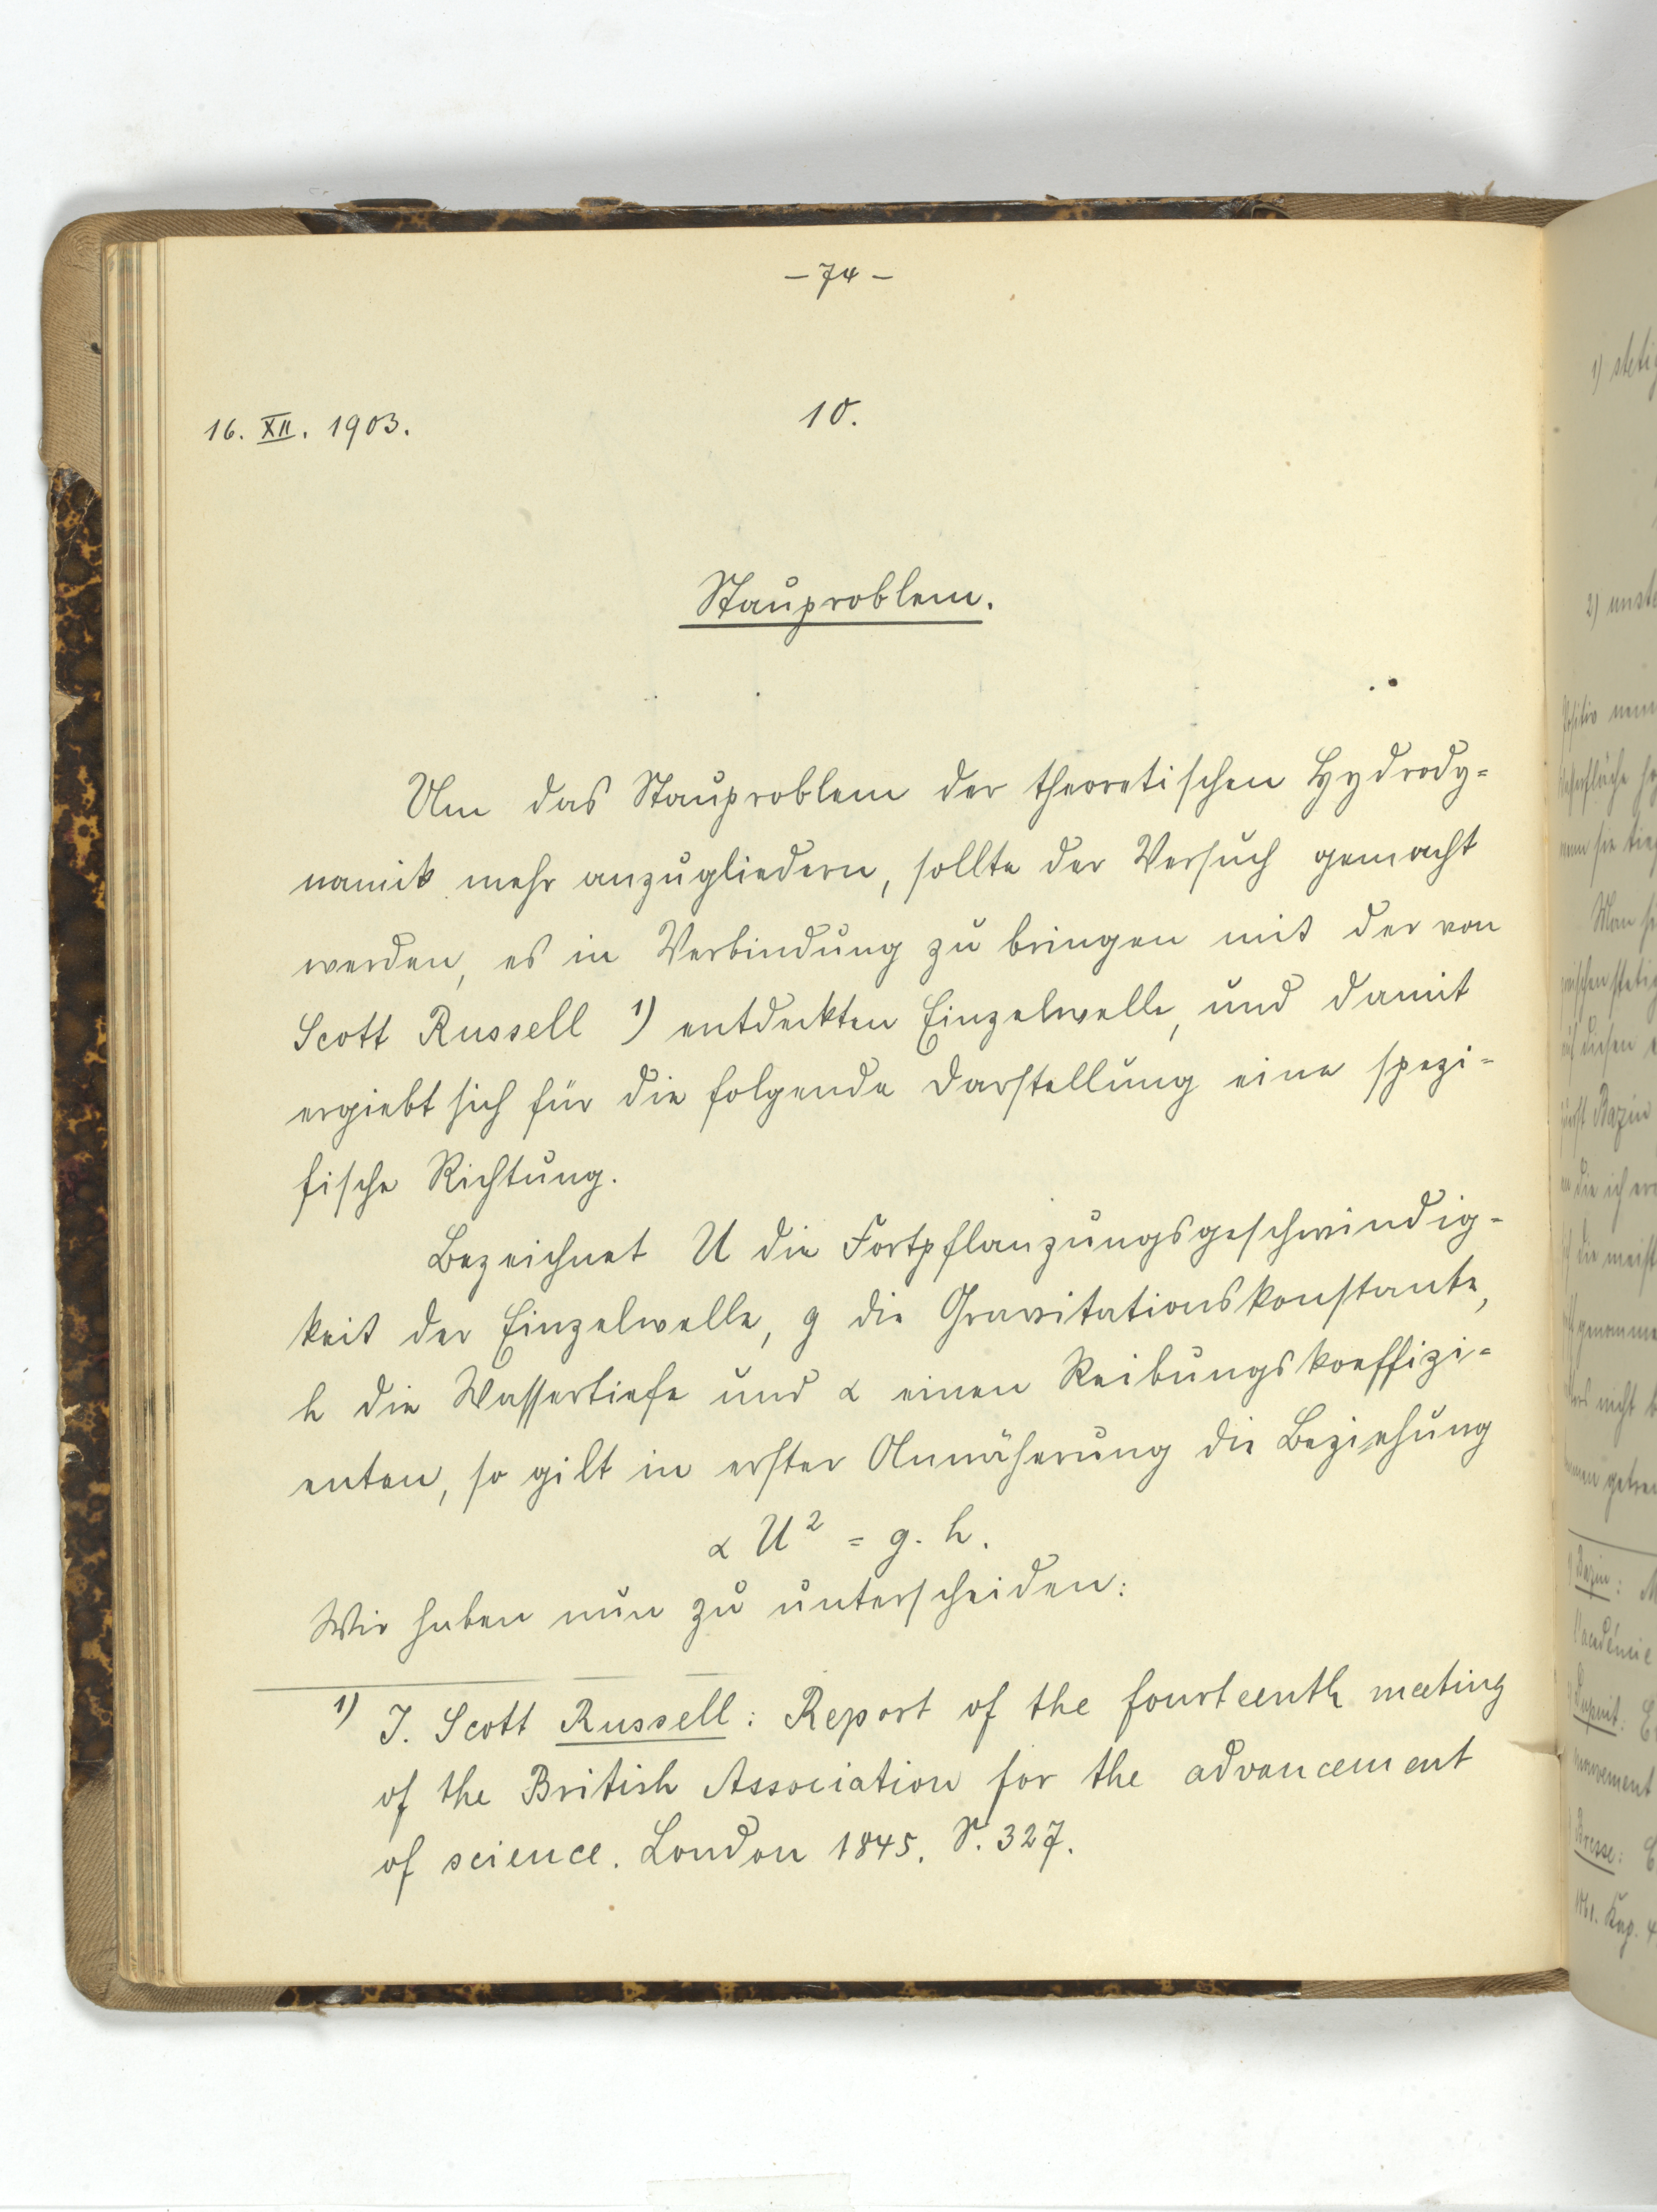 – 74 –
16. XII. 1903.
10.
Stauproblem.
Um das Stauproblem der theoretischen Hydrody-
namik mehr anzugliedern, sollte der Versuch gemacht
werden, es in Verbindung zu bringen mit der von
Scott Russell 1) entdeckten Einzelwelle, und damit
ergiebt sich für die folgende Darstellung eine spezi-
fische Richtung.
Bezeichnet U die Fortpflanzungsgeschwindig-
keit der Einzelwelle, g die Gravitationskonstante,
h die Wassertiefe und α einen Reibungskoeffizi-
enten, so gilt in erster Annäherung die Beziehung
α U² = g. h.
Wir haben nun zu unterscheiden:
1) J. Scott Russell: Report of the fourteenth meeting
of the British Association for the advancement
of science. London 1845. S. 327.
1) stetig
2) unste
Man
Bazin
die ich
die meist
nicht
Bazin: M
l'académie
Dupuit: E
mouvement
Bresse: C
Kap. 4